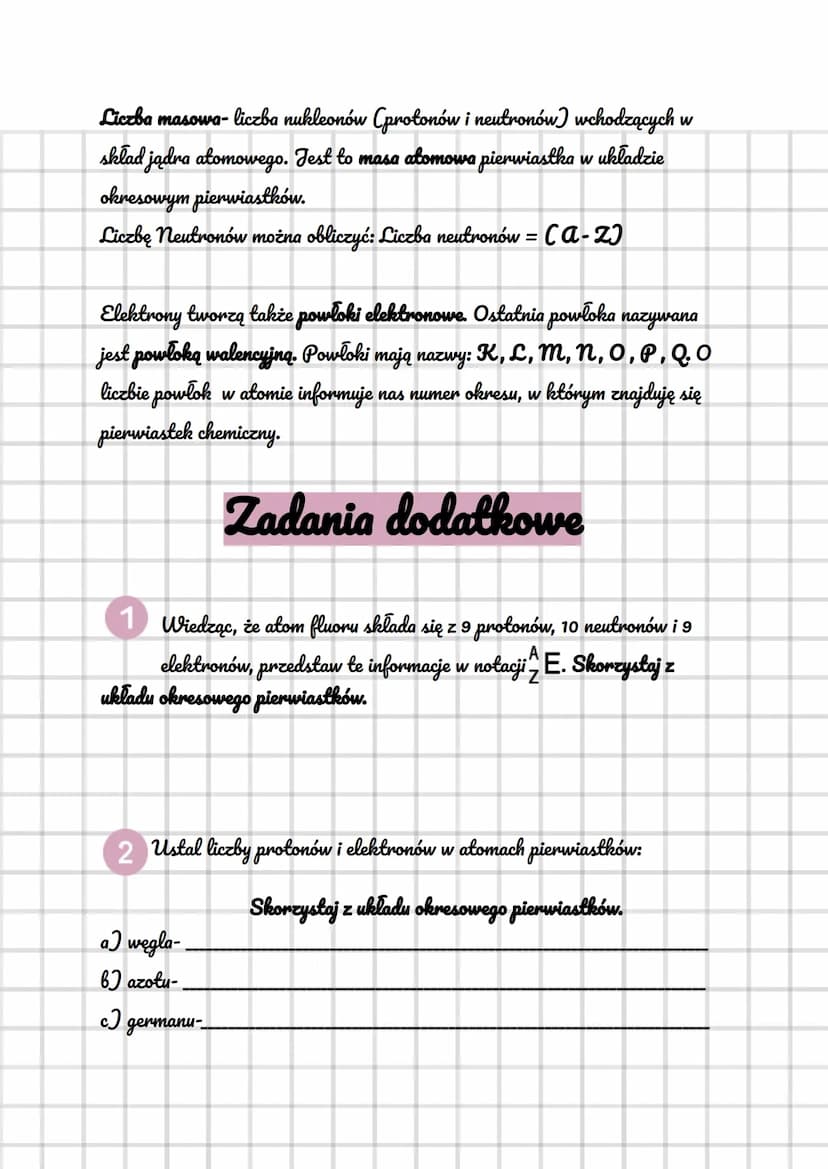 Liczba masowa- liczba nukleonów (protonów i neutronów) wchodzących w
skład jądra atomowego. Jest to masa atomowa pierwiastka w układzie
okresowym pierwiastków.
Liczbę Neutronów można obliczyć: Liczba neutronów = (A-Z)
Elektrony tworzą także powłoki elektronowe. Ostatnia powłoka nazywana
jest powłoką walencyjną. Powłoki mają nazwy: K, L, M, N, O, P, Q. O
liczbie powłok w atomie informuje nas numer okresu, w którym znajduję się
pierwiastek chemiczny.
Zadania dodatkowe
1 Wiedząc, że atom fluoru składa się z 9 protonów, 10 neutronów i 9
elektronów, przedstaw te informacje w notacji A Z E. Skorzystaj z
układu okresowego pierwiastków.
2 Ustal liczby protonów i elektronów w atomach pierwiastków:
Skorzystaj z układu okresowego pierwiastków.
a) węgla- 
b) azotu- 
c) germanu-